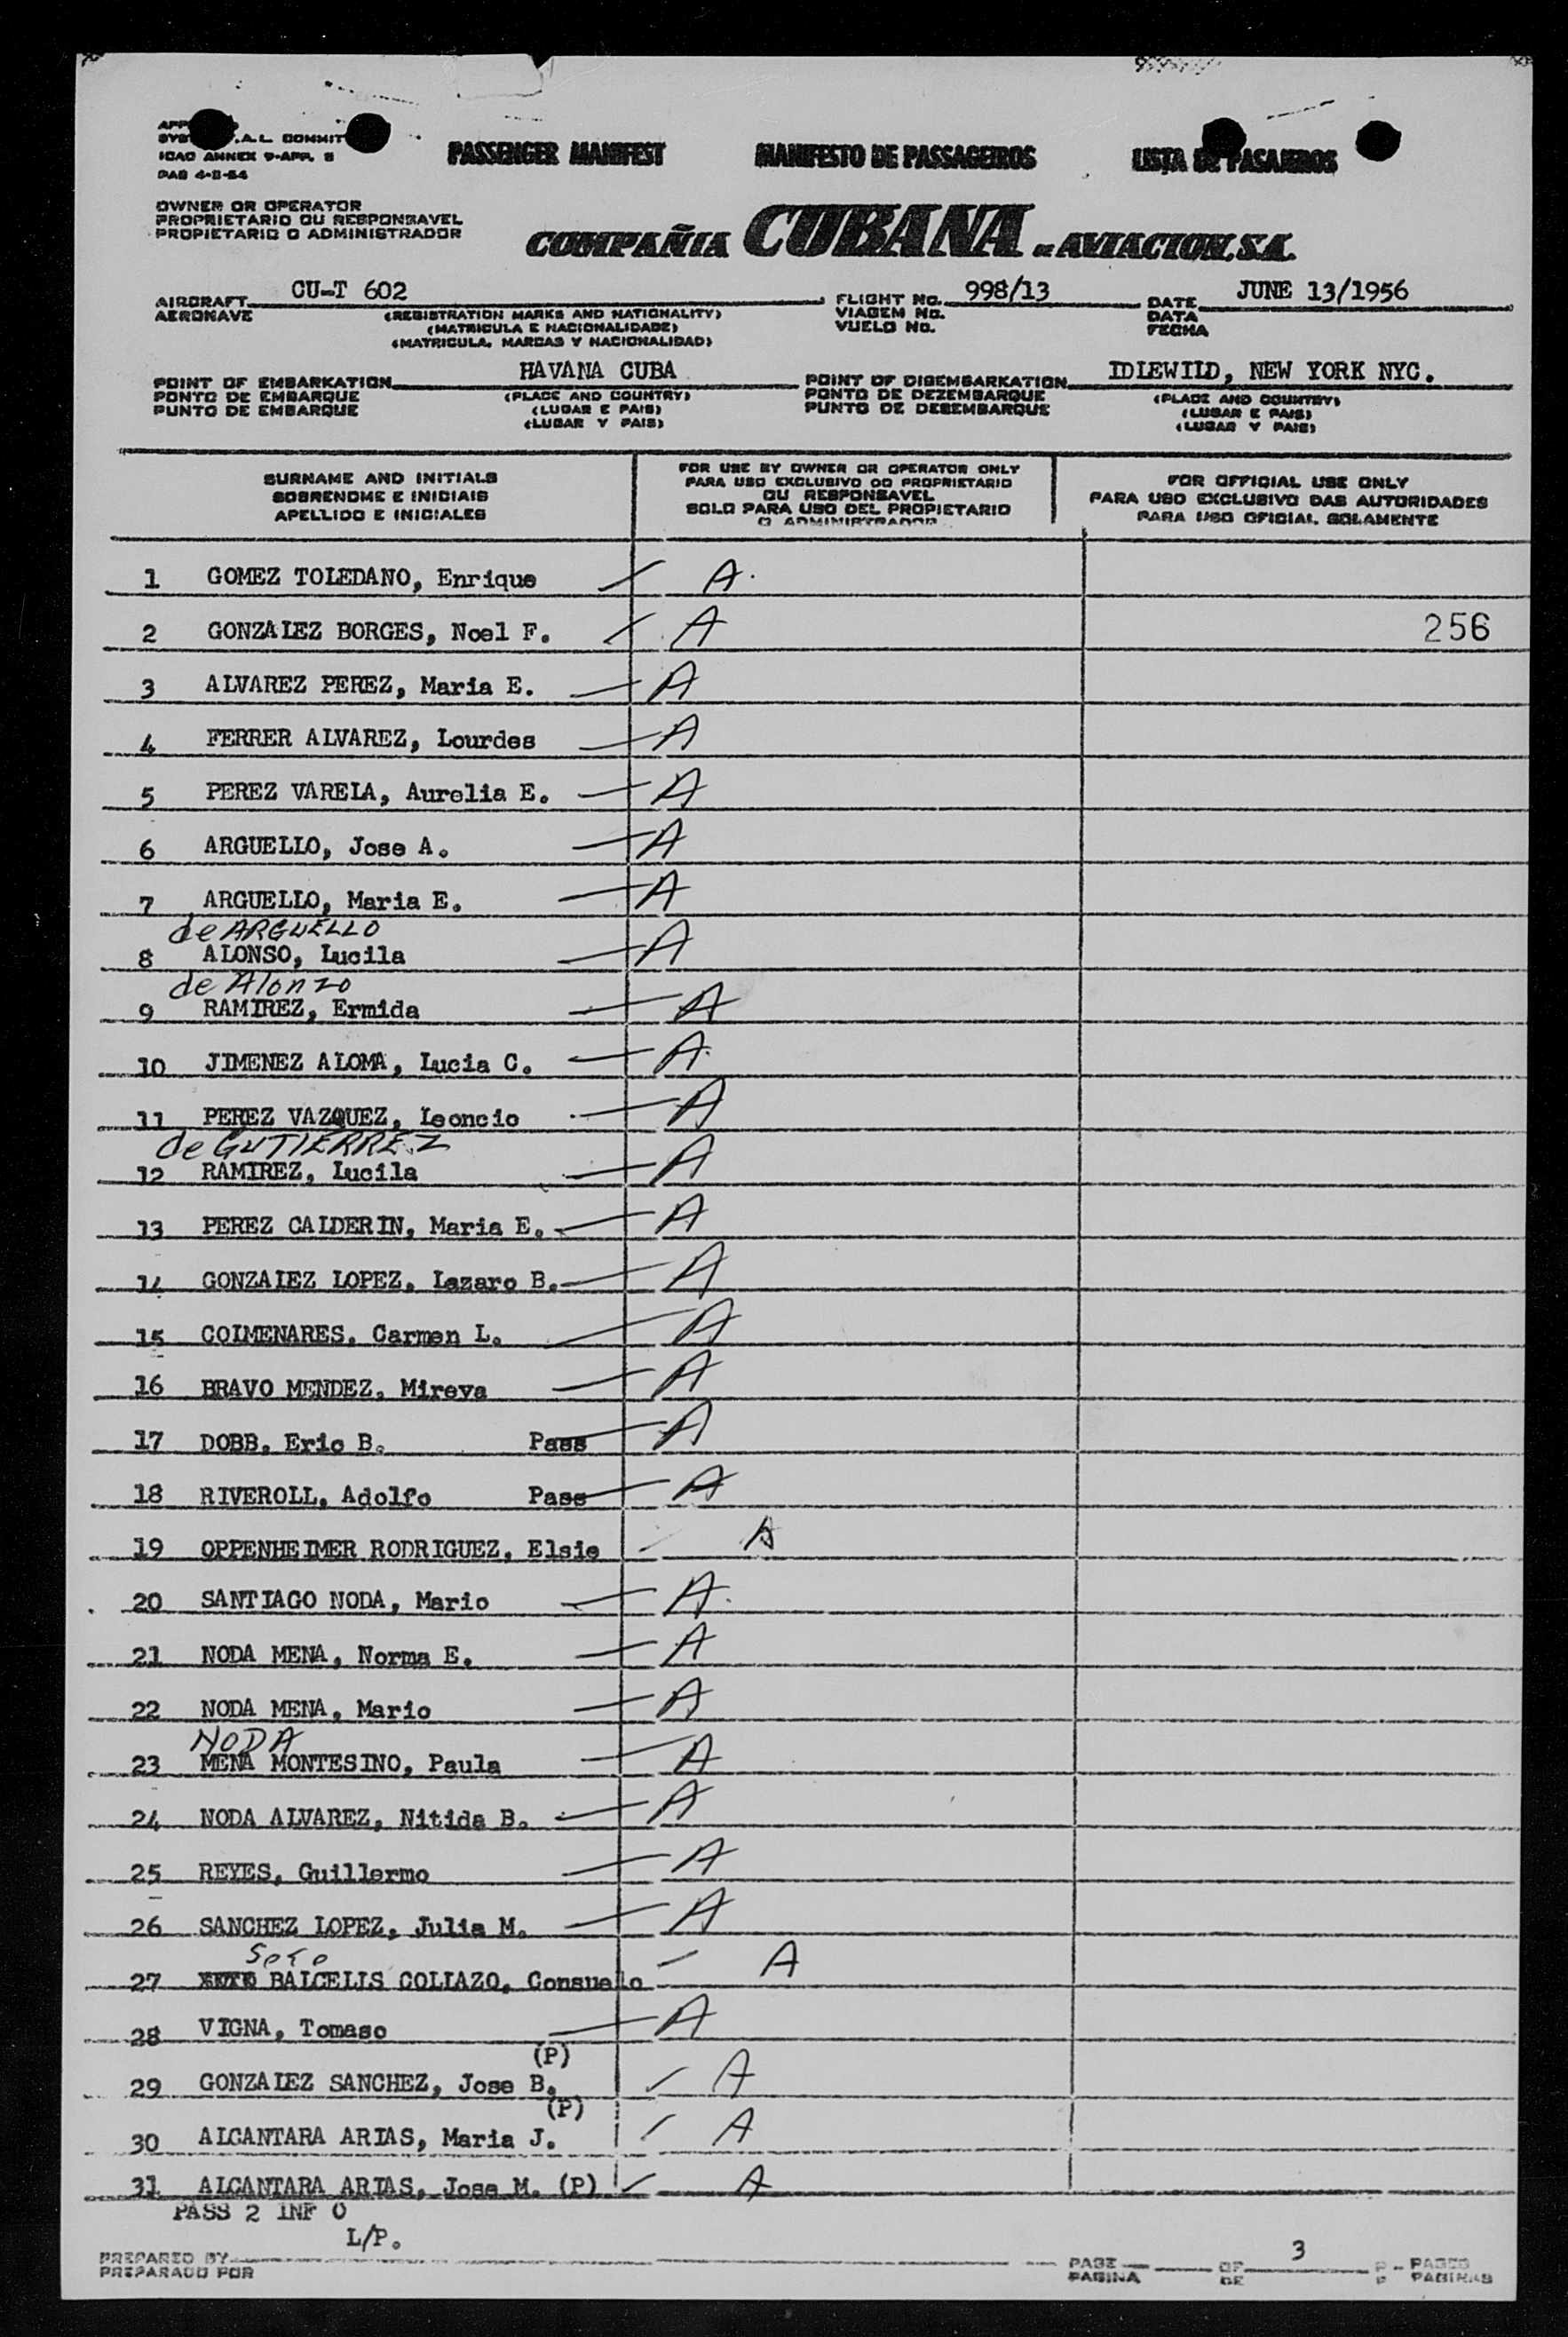 APP
SYS .A.L. COMMIT
ICAO ANNEX 9-APP. 8
PAB 4-8-54
PASSENGER MANIFEST MANIFESTO DE PASSAGEIROS LISTA DE PASAJEROS
OWNER OR OPERATOR
PROPRIETARIO OU RESPONSAVEL
PROPIETARIO O ADMINISTRADOR
COMPAÑIA CUBANA DE AVIACION, S.A.
AIRCRAFT CU-T 602 FLIGHT No. 998/13 DATE JUNE 13/1956
AERONAVE (REGISTRATION MARKS AND NATIONALITY) VIAGEM No. DATA
(MATRICULA E NACIONALIDADE) VUELO No. FECHA
(MATRICULA, MARCAS Y NACIONALIDAD)
POINT OF EMBARKATION HAVANA CUBA POINT OF DISEMBARKATION IDLEWILD, NEW YORK NYC.
PONTO DE EMBARQUE (PLACE AND COUNTRY) PONTO DE DEZEMBARQUE (PLACE AND COUNTRY)
PUNTO DE EMBARQUE (LUGAR E PAIS) PUNTO DE DESEMBARQUE (LUGAR E PAIS)
(LUGAR Y PAIS) (LUGAR Y PAIS)
SURNAME AND INITIALS
SOBRENOME E INICIAIS
APELLIDO E INICIALES
FOR USE BY OWNER OR OPERATOR ONLY
PARA USO EXCLUSIVO DO PROPRIETARIO
OU RESPONSAVEL
SOLO PARA USO DEL PROPIETARIO
O ADMINISTRADOR
FOR OFFICIAL USE ONLY
PARA USO EXCLUSIVO DAS AUTORIDADES
PARA USO OFICIAL SOLAMENTE
1 GOMEZ TOLEDANO, Enrique A.
2 GONZALEZ BORGES, Noel F. A 256
3 ALVAREZ PEREZ, Maria E. A
4 FERRER ALVAREZ, Lourdes A
5 PEREZ VARELA, Aurelia E. A
6 ARGUELLO, Jose A. A
7 ARGUELLO, Maria E. A
de ARGUELLO
8 ALONSO, Lucila A
de Alonzo
9 RAMIREZ, Ermida A
10 JIMENEZ ALOMA, Lucia C. A
11 PEREZ VAZQUEZ, Leoncio A
de GUTIERREZ
12 RAMIREZ, Lucila A
13 PEREZ CALDERIN, Maria E. A
14 GONZALEZ LOPEZ, Lazaro B. A
15 COLMENARES, Carmen L. A
16 BRAVO MENDEZ, Mireya A
17 DOBB, Eric B. Pass A
18 RIVEROLL, Adolfo Pass A
19 OPPENHEIMER RODRIGUEZ, Elsie A
20 SANTIAGO NODA, Mario A
21 NODA MENA, Norma E. A
22 NODA MENA, Mario A
NODA
23 MENA MONTESINO, Paula A
24 NODA ALVAREZ, Nitida B. A
25 REYES, Guillermo A
26 SANCHEZ LOPEZ, Julia M. A
Soto
27 BALCELLS COLLAZO, Consuelo A
28 VIGNA, Tomaso A
(P)
29 GONZALEZ SANCHEZ, Jose B. A
(P)
30 ALCANTARA ARIAS, Maria J. A
31 ALCANTARA ARIAS, Jose M. (P) A
PASS 2 INF 0
L/P.
PREPARED BY PAGE OF 3 PAGES
PREPARADO POR PAGINA DE PAGINAS